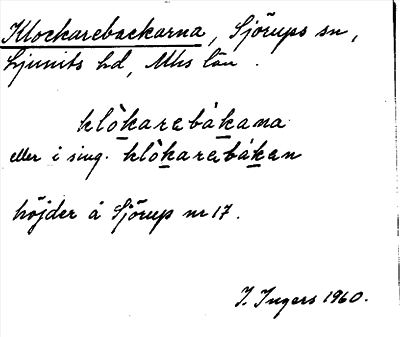 Klockarebackarna, Sjörups sn,
Ljunits hd, Mhs län.
klòkarebákana
eller i sing. klòkarebákan
höjder å Sjörup nr 17.
I. Ingers 1960.